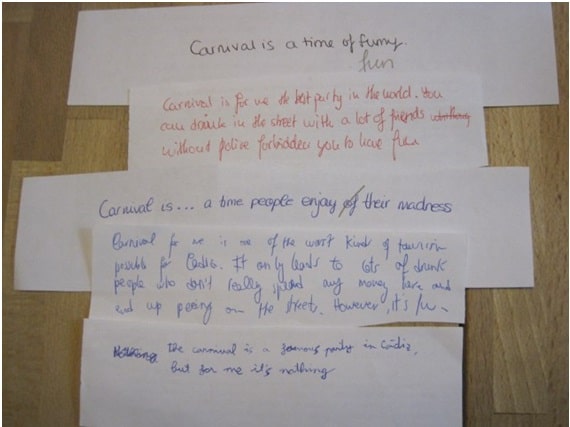 Carnival is a time of funny.
fun
Carnival is for me the best party in the world. You
can drink in the street with a lot of friends
without police forbidden you to have fun
Carnival is... a time people enjoy of their madness
Carnival for me is one of the worst kinds of tourism
possible for Cádiz. It only leads to lots of drunk
people who don't really spend any money here and
end up peeing on the streets. However, it's fun
The carnaval is a famous party in Cádiz,
but for me it's nothing